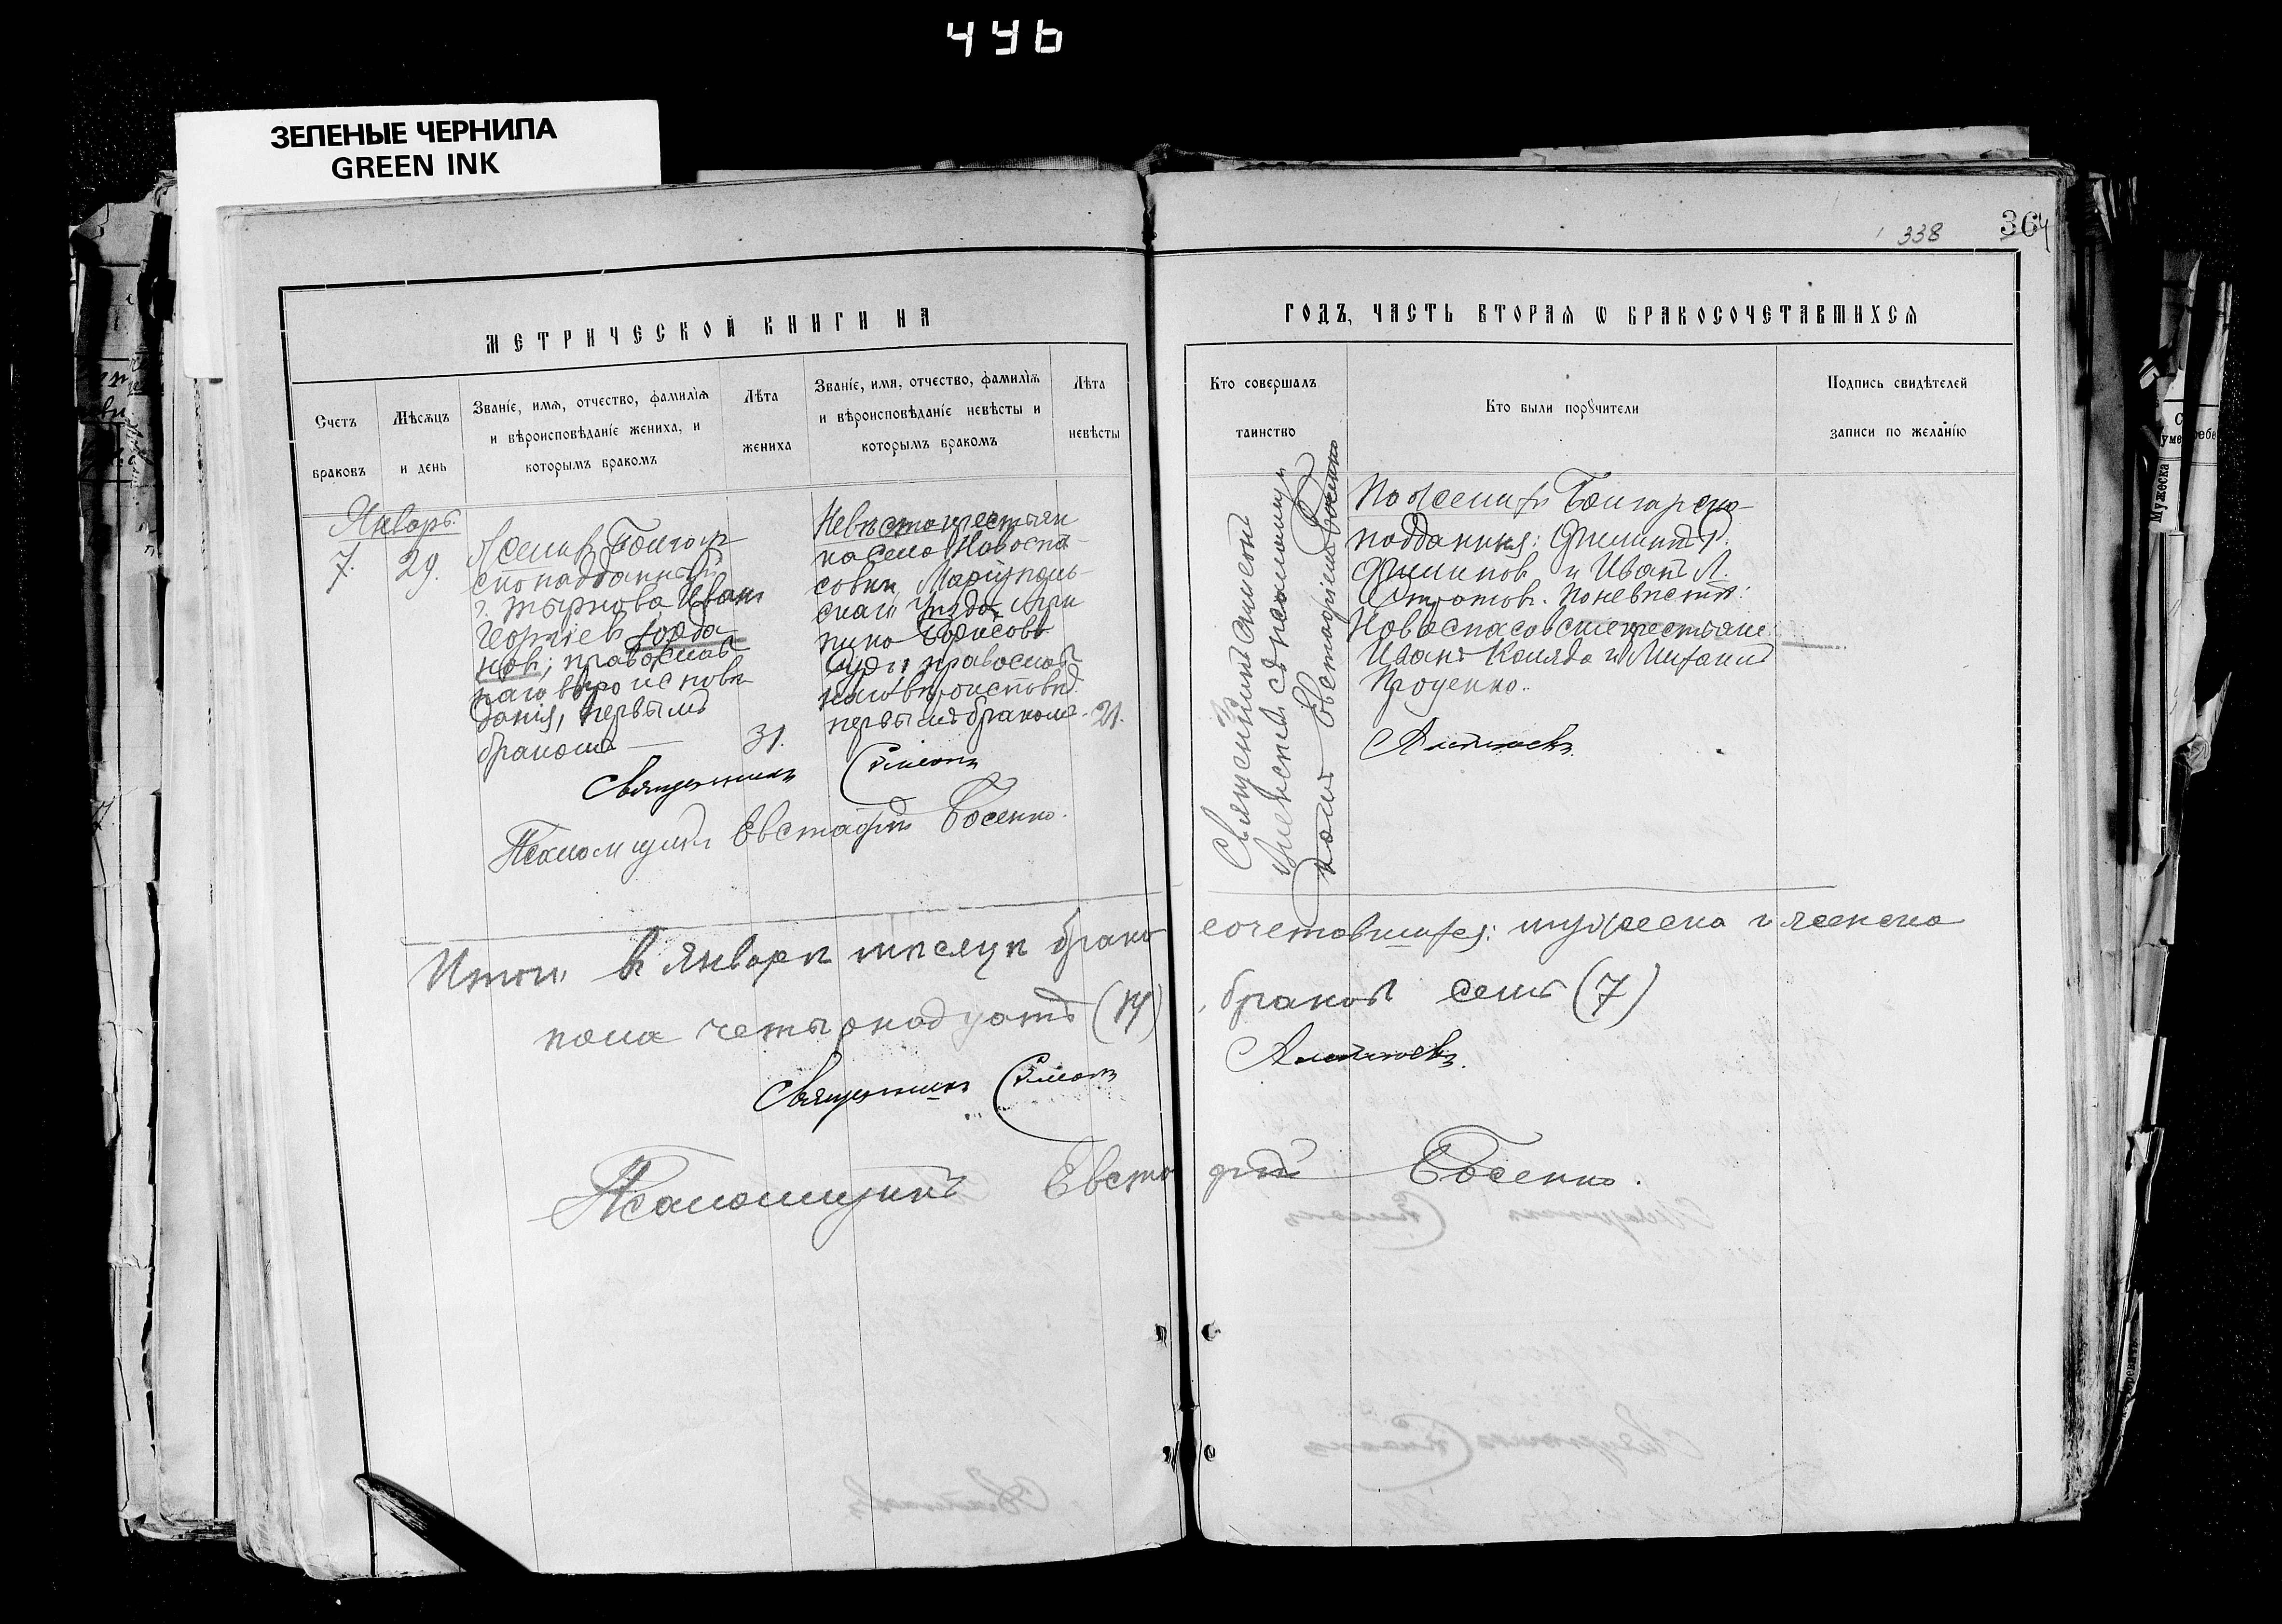 446
ЗЕЛЕНЫЕ ЧЕРНИЛА
GREEN INK
338
364
МЕТРИЧЕСКОЙ КНИГИ НА
ГОДЪ, ЧАСТЬ ВТОРАЯ Ѡ БРАКОСОЧЕТАВШИХСЯ
Счетъ браковъ
Мѣсяцъ и день
Званіе, имя, отчество, фамилія
и вѣроисповѣданіе жениха, и
которымъ бракомъ
Лѣта жениха
Званіе, имя, отчество, фамилія
и вѣроисповѣданіе невѣсты и
которымъ бракомъ
Лѣта невѣсты
Кто совершалъ таинство
Кто были порꙋчители
Подпись свидѣтелей
записи по желанію
Январь
7.
29.
Женихъ Болгар
скоподданный
г. Тырнова Иванъ
Георгіевъ Юрда
новъ; православ
наго вѣроисповѣ
данія, первымъ
бракомъ
31.
Невѣста крестьян
ка села Новоспа-
совки, Маріуполь-
скаго уѣзда,
православ
наго вѣроисповѣд.
первымъ бракомъ.
21.
Священникъ Симеонъ
съ псаломщи
комъ Евстафіемъ Босенко
По женихѣ Болгарско-
подданные: Филиппъ Г.
Филиповъ и Иванъ Л.
Стратовъ. По невѣстѣ:
Новоспасовскіе крестьяне
Иванъ Коляда и Митрофанъ
Проценко.
Священникъ Симеонъ
Псаломщикъ Евстафій Босенко.
Итого въ Январѣ мѣсяцѣ брако
сочетавшихся: мужеска и женска
пола четырнадцать (14)
браковъ семь (7)
Священникъ Симеонъ
Псаломщикъ Евста
фій Босенко.